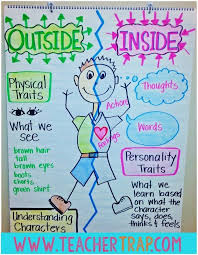 OUTSIDE
INSIDE
Physical
Traits
What we
see
brown hair
tall
brown eyes
boots
shorts
green shirt
Understanding
Characters
Actions
feelings
Thoughts
Words
Personality
Traits
What we
learn based
on what the
character
says, does,
thinks & feels
WWW.TEACHERTRAP.COM